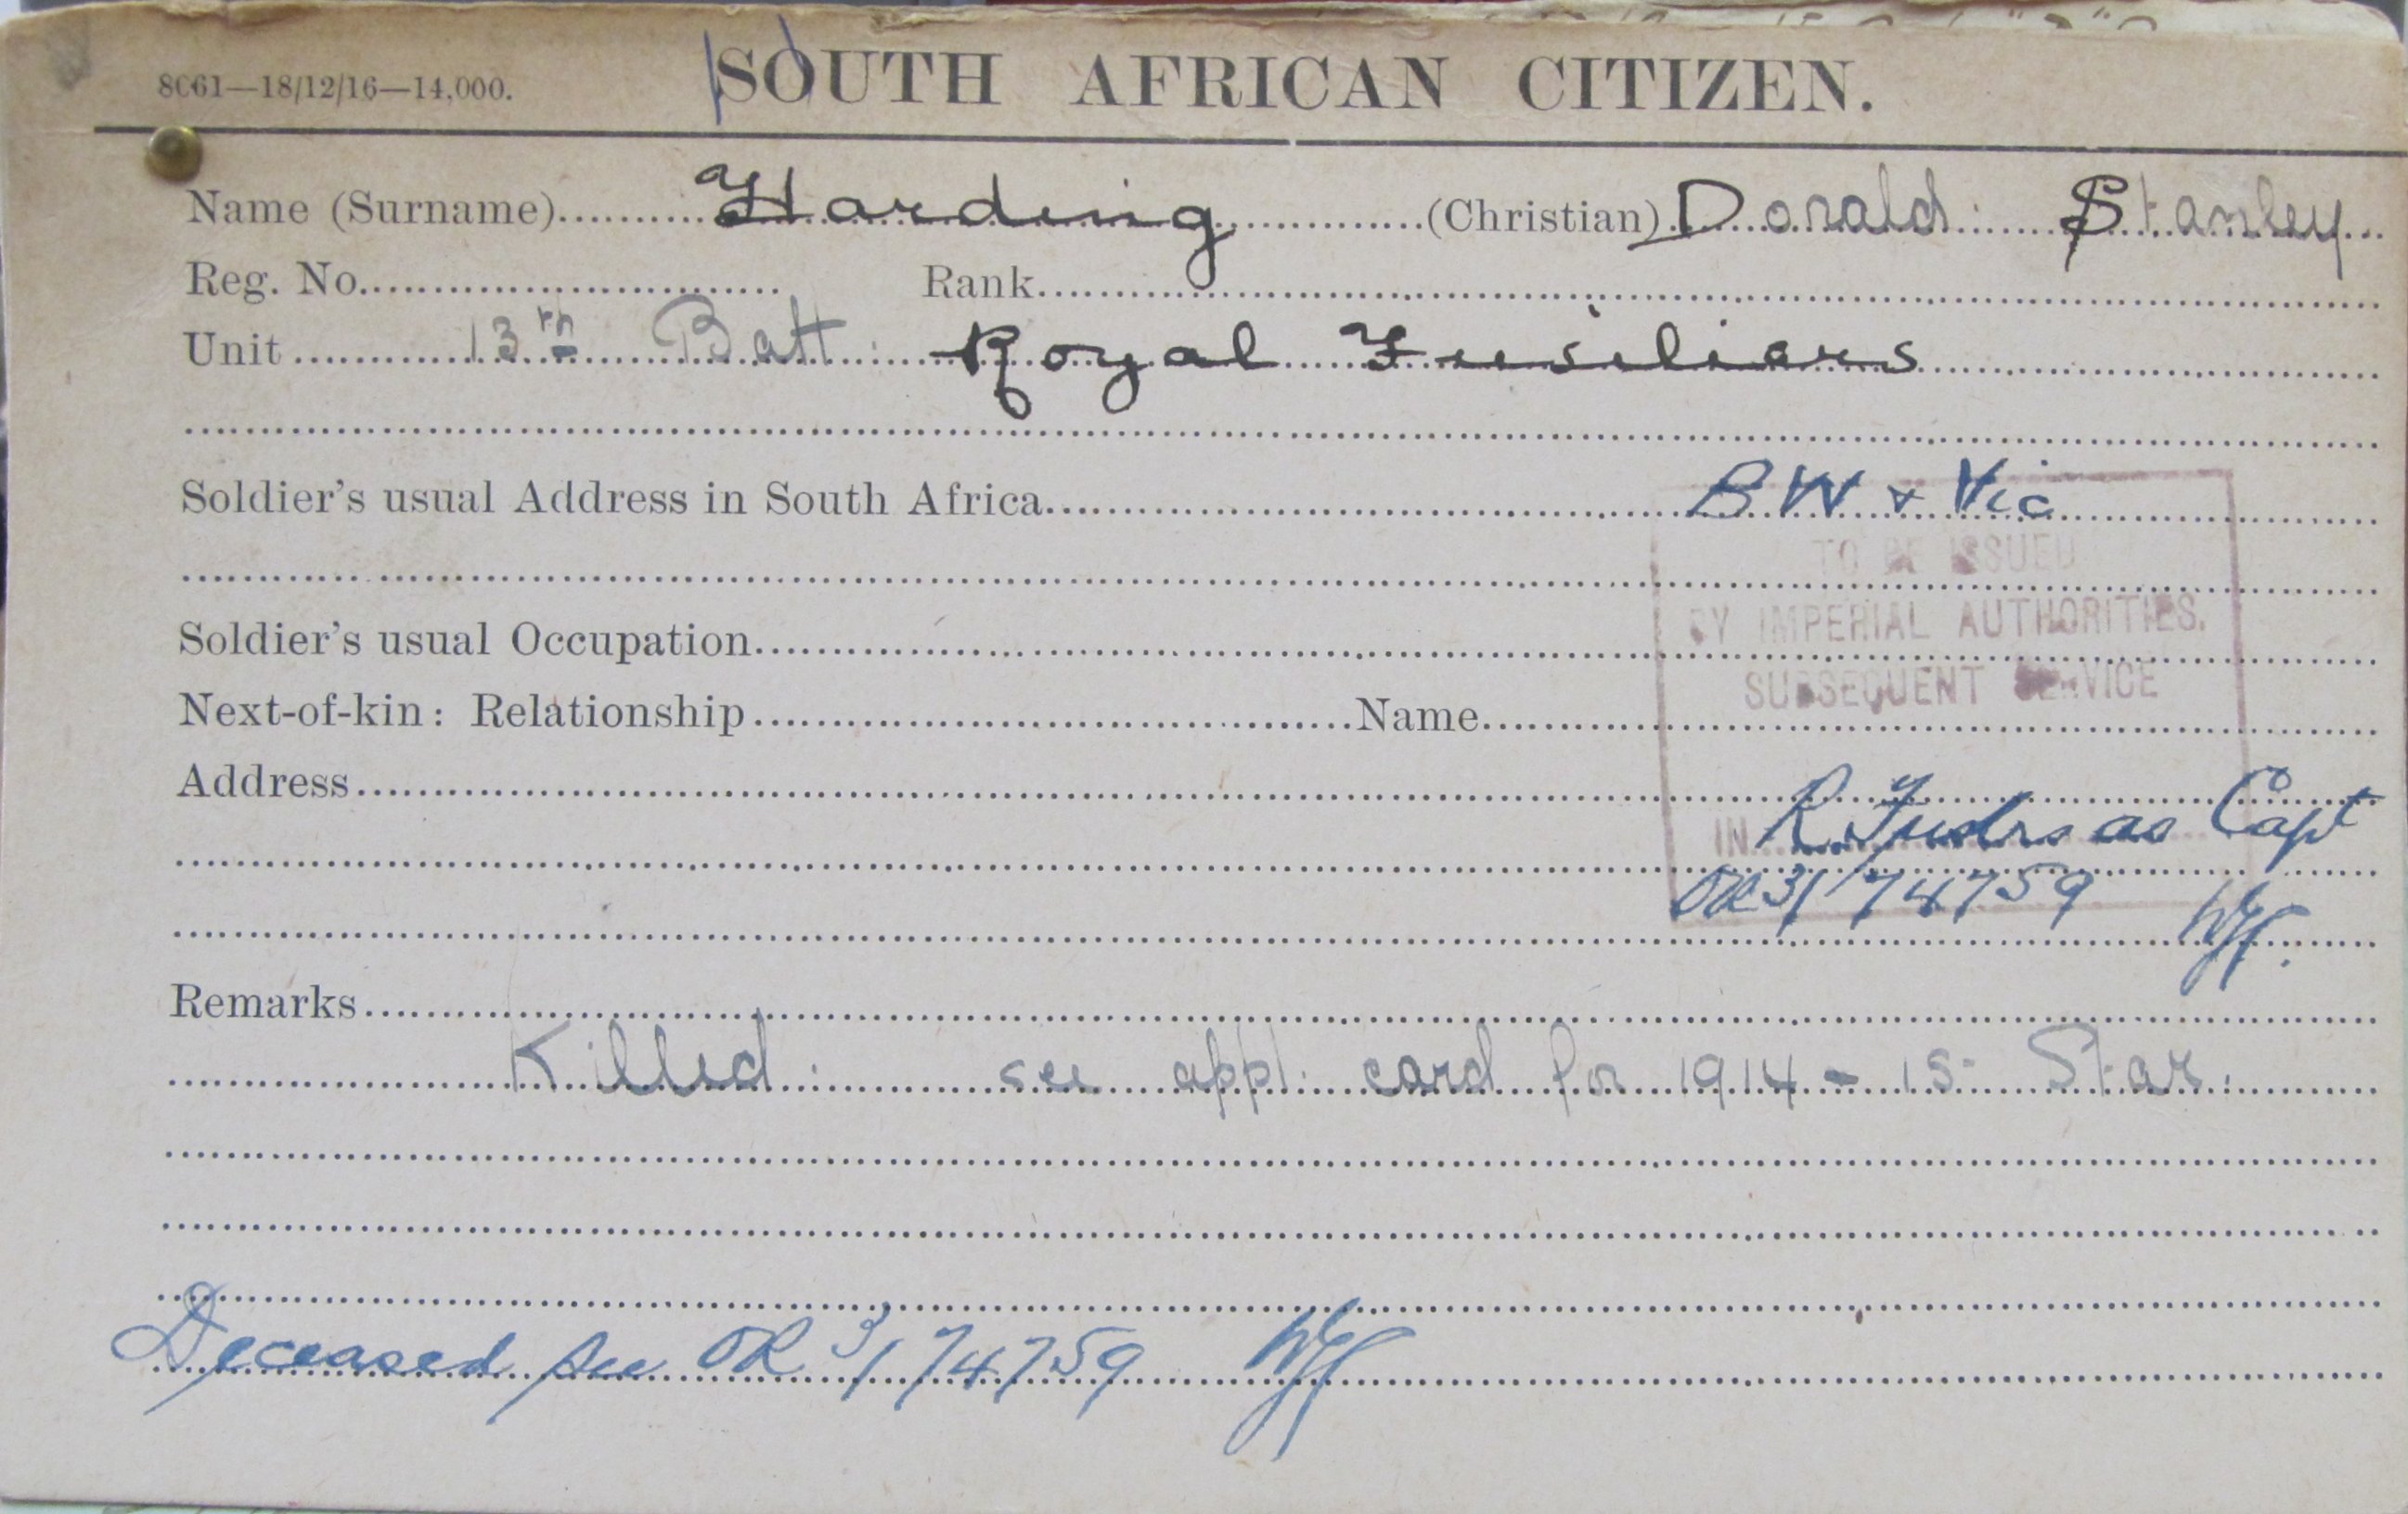 8061—18/12/16—14,000.
SOUTH AFRICAN CITIZEN.
Name (Surname) Harding (Christian) Donald: Stanley
Reg. No. Rank
Unit 13th Batt: Royal Fusiliers
Soldier's usual Address in South Africa
BW & Vic
TO BE ISSUED
BY IMPERIAL AUTHORITIES.
Soldier's usual Occupation
SUBSEQUENT SERVICE
Next-of-kin: Relationship Name
Address
IN R. Fuslrs as Capt
OR3/74759
Remarks
Killed: see appl: card for 1914-15 Star.
Deceased see OR 3/74759